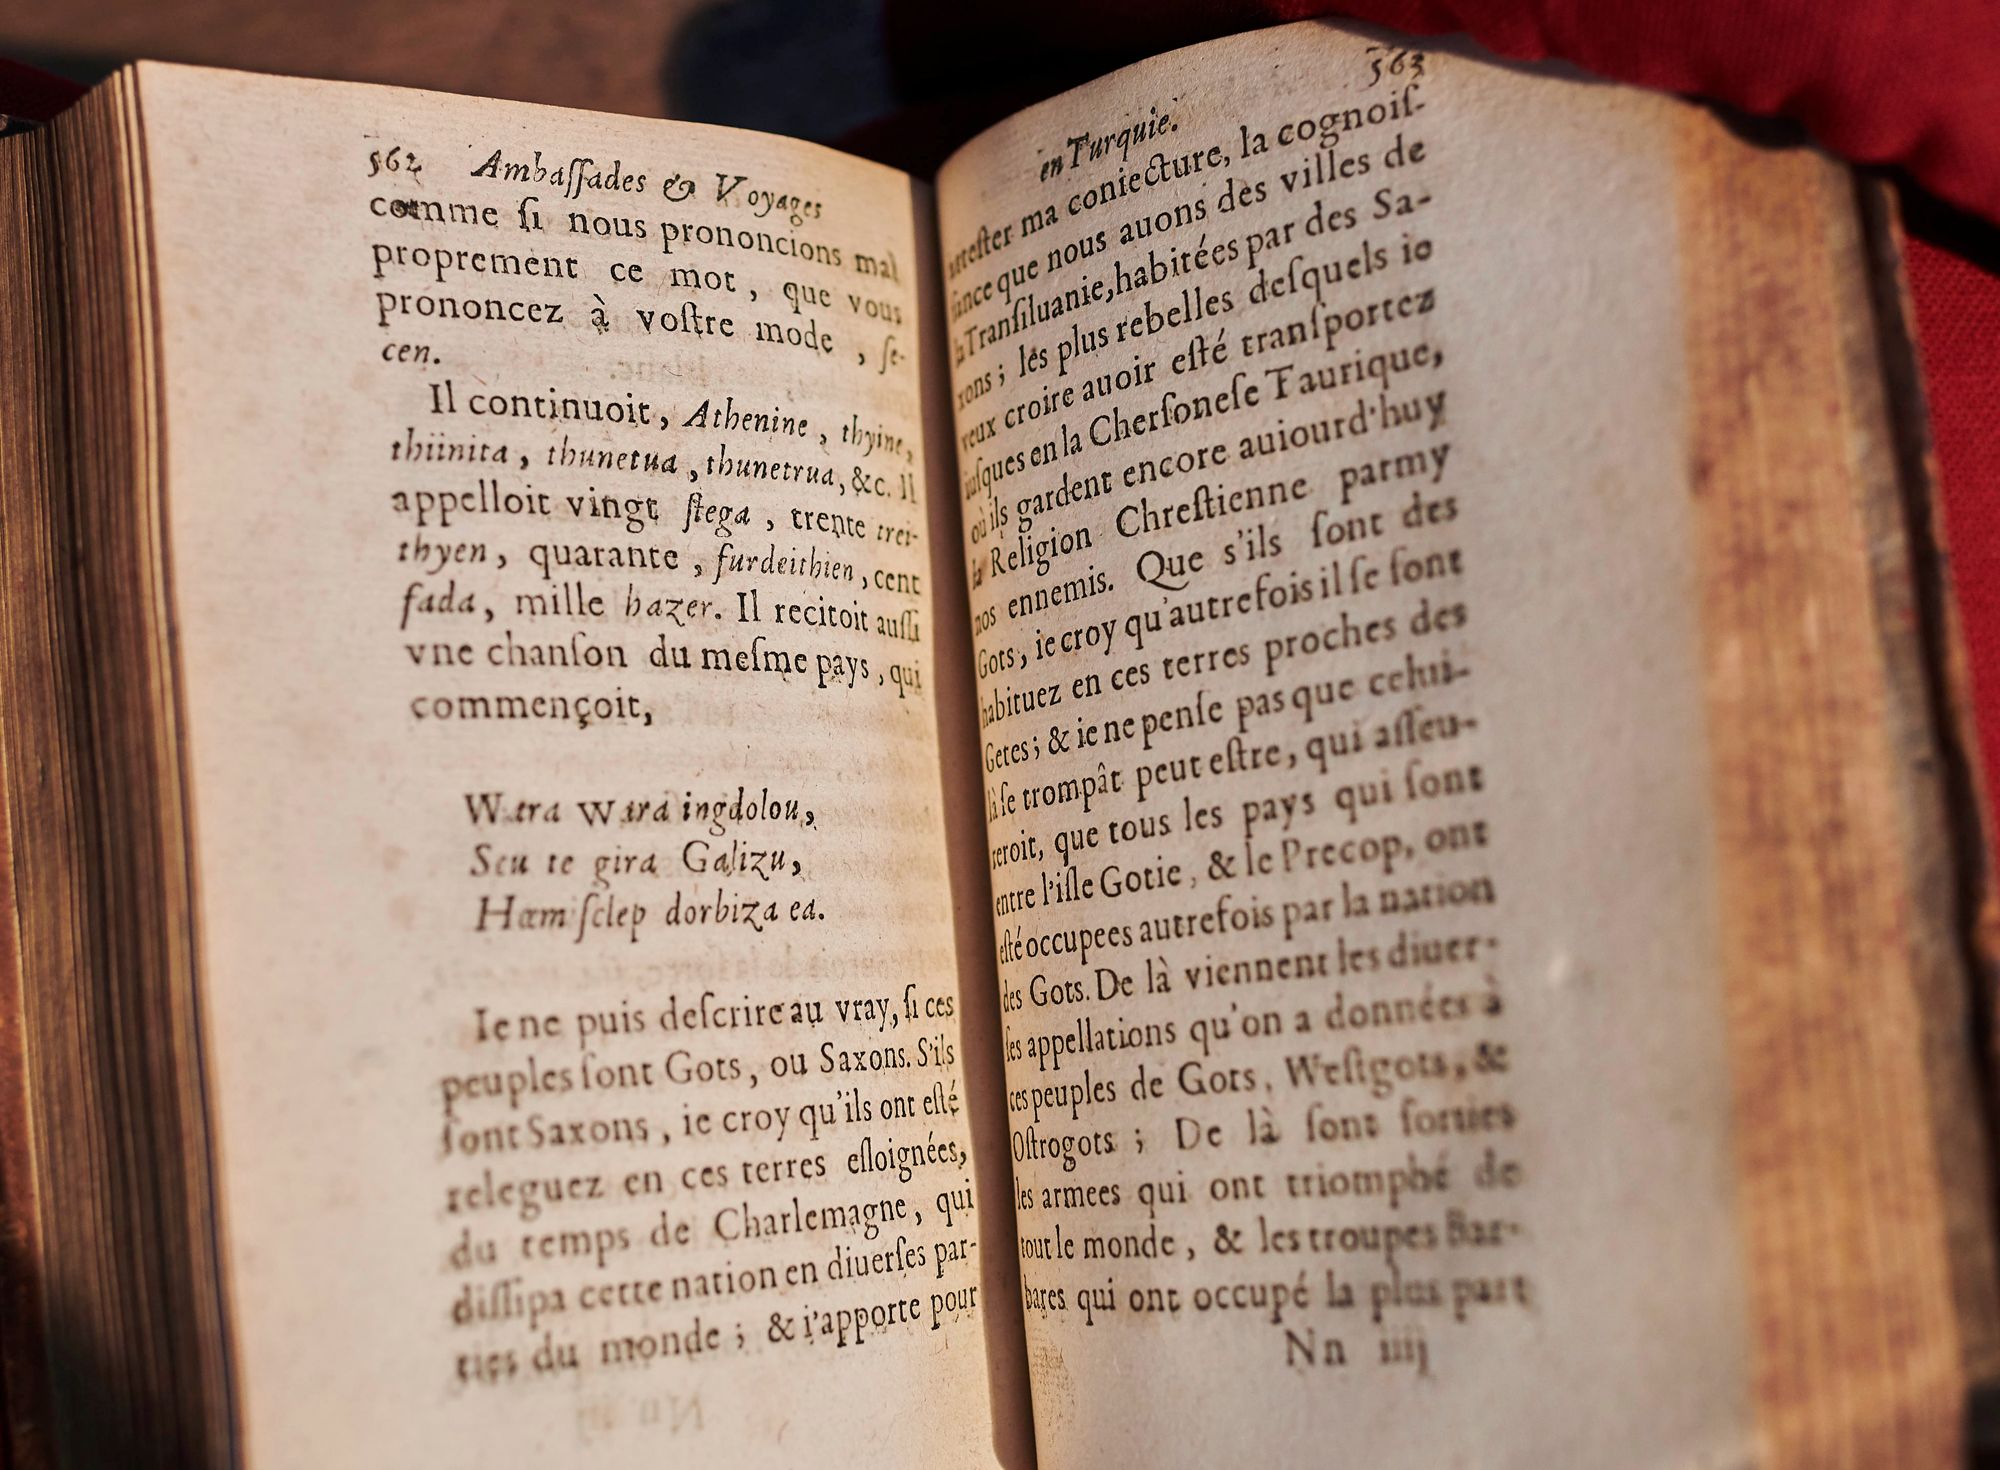 562 Ambaſſades & Voyages
comme ſi nous prononcions mal
proprement ce mot, que vous
prononcez à voſtre mode, ſe-
cen.
Il continuoit, Athenine, thyine,
thiinita, thunetua, thunetrua, &c. Il
appelloit vingt ſtega, trente trei-
thyen, quarante, furdeithien, cent
ſada, mille hazer. Il recitoit auſſi
vne chanſon du meſme pays, qui
commençoit,
Wara wara ingdolou,
Scu te gira Galizu,
Hœm ſclep dorbiza ea.
Ie ne puis deſcrire au vray, ſi ces
peuples ſont Gots, ou Saxons. S'ils
ſont Saxons, ie croy qu'ils ont eſté
releguez en ces terres eſloignées,
du temps de Charlemagne, qui
diſſipa cette nation en diuerſes par-
ties du monde; & i'apporte pour
563
en Turquie.
atteſter ma coniecture, la cognoiſ-
ſance que nous auons des villes de
la Tranſiluanie, habitées par des Sa-
xons; les plus rebelles deſquels ie
veux croire auoir eſté tranſportez
iuſques en la Cherſoneſe Taurique,
où ils gardent encore auiourd'huy
la Religion Chreſtienne parmy
nos ennemis. Que s'ils ſont des
Gots, ie croy qu'autrefois il ſe ſont
habituez en ces terres proches des
Getes; & ie ne penſe pas que celui-
là ſe trompât peut eſtre, qui aſſeu-
reroit, que tous les pays qui ſont
entre l'iſle Gotie, & le Precop, ont
eſté occupees autrefois par la nation
des Gots. De là viennent les diuer-
ſes appellations qu'on a données à
ces peuples de Gots, Weſtgots, &
Oſtrogots; De là ſont ſorties
les armees qui ont triomphé de
tout le monde, & les troupes Bar-
bares qui ont occupé la plus part
Nn iiij